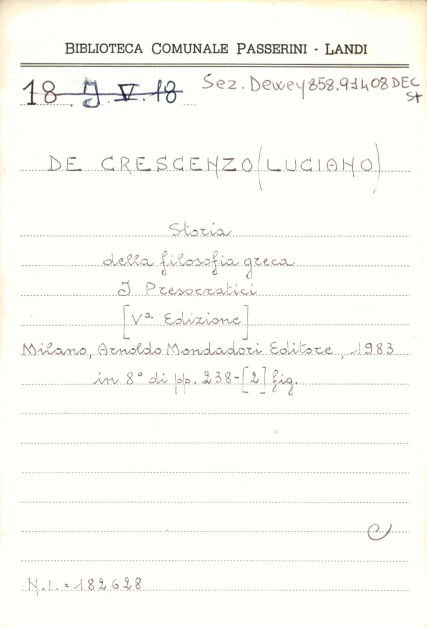 BIBLIOTECA COMUNALE PASSERINI - LANDI
18. J. V. 18 Sez. Dewey 858.91408 DEC
St
DE CRESCENZO (LUCIANO)
Storia
della filosofia greca
I Presocratici
[Vª Edizione]
Milano, Arnoldo Mondadori Editore, 1983
in 8° di pp. 238-[2] fig.
N.I. = 182628